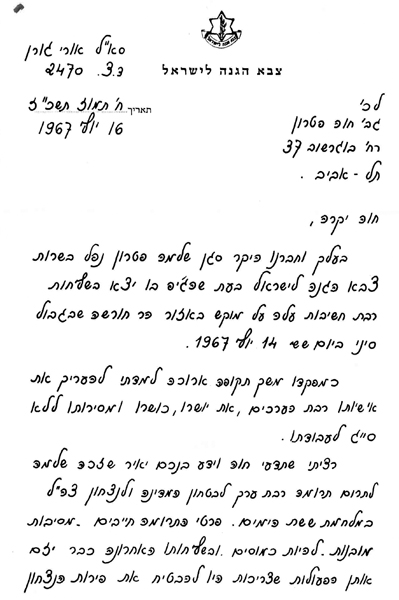 צבא הגנה לישראל
סא"ל אורי גורן
ד.צ. 2470
תאריך ח' תמוז תשכ"ז
16 יולי 1967
לכ'
גב' חוה פטרון
רח' בוגרשוב 37
תל-אביב.
חוה יקרה,
בעלך וחברנו היקר סגן שלמה פטרון נפל בשרות
צבא הגנה לישראל בעת שהג'יפ בו יצא בשליחות
רבת חשיבות עלה על מוקש באזור הר חורשה שבגבול
סיני ביום ששי 14 יולי 1967.
כמפקדו משך תקופה ארוכה למדתי להעריך את
אישיותו רבת הערכים, את יושרו, כושרו ומסירותו ללא
סייג לעבודתו.
רציתי שתדעי חוה וידע בנכם יאיר שזכה שלמה
לתרום תרומה רבת ערך לבטחון המדינה ולנצחון צה"ל
במלחמת ששת הימים. פרטי התרומה חייבים - מסיבות
מובנות - להיות כמוסים. ובשליחותו האחרונה כבר יזם
אותן הפעולות שצריכות היו להבטיח את פירות הנצחון